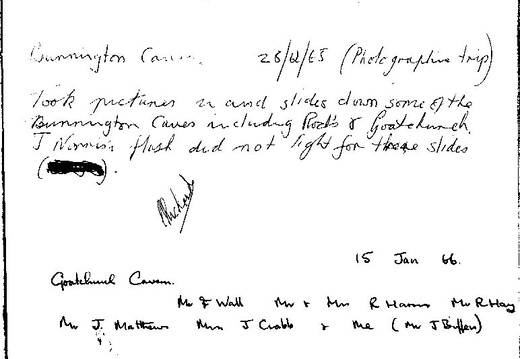 Bunnington Caves 28/12/65 (Photographic trip)
Took pictures and slides down some of the
Bunnington Caves including Rod's & Goatchurch
J Norris's flash did not light for these slides
15 Jan 66.
Goatchurch Cavern.
Mr F Wall Mr & Mrs R Harris Mr R Hay
Mr J. Matthews Mrs J Crabb & Me (Mr J Biffen)